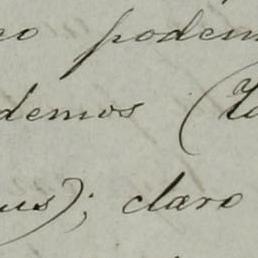 co podem
demos (
us); claro